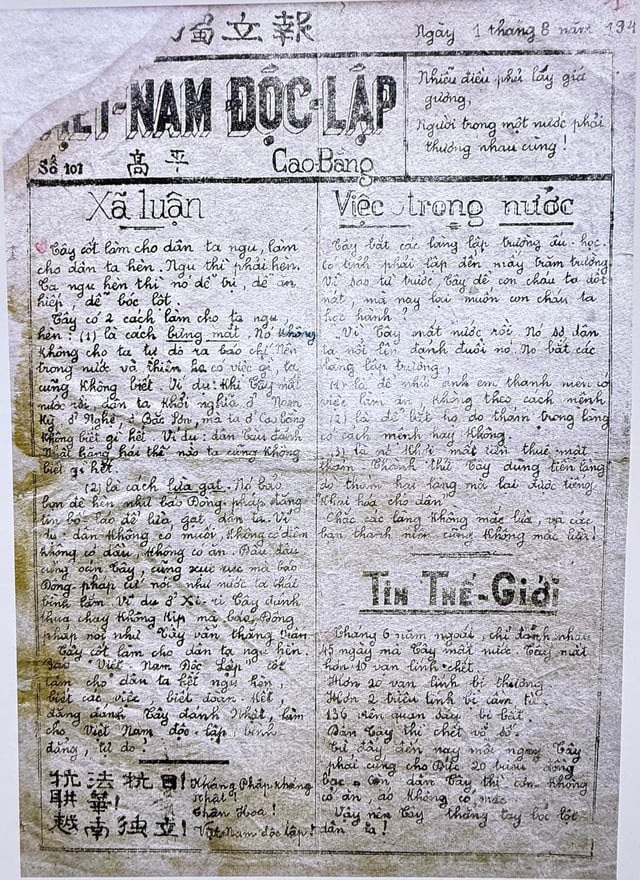 獨立報
Ngày 1 tháng 8 năm 194
VIỆT-NAM ĐỘC-LẬP
Số 101 高平 Cao-Bằng
Nhiễu điều phủ lấy giá
gương,
Người trong một nước phải
thương nhau cùng!
Xã luận
Tây cốt làm cho dân ta ngu, làm
cho dân ta hèn. Ngu thì phải hèn.
Ta ngu hèn thì nó dễ trị, dễ áp
hiếp, dễ bóc lột.
Tây có 2 cách làm cho ta ngu
hèn: (1) là cách bưng mắt. Nó không
không cho ta tự do ra báo chí. Nên
trong nước và thiên hạ có việc gì, ta
cũng không biết. Ví dụ: khi Tây mất
nước rồi, dân ta khởi nghĩa ở Nam
Kỳ, ở Nghệ, ở Bắc Sơn, mà ta ở Cao Bằng
không biết gì hết. Ví dụ: dân Tàu đánh
Nhật hăng hái thế nào ta cũng không
biết gì hết.
(2) là cách lừa gạt. Nó bảo
bọn đê hèn như báo Đông-pháp đặng
láo để lừa gạt dân ta. Ví
dụ: dân không có muối, không có diêm
không có dầu, không có ăn. Đâu đâu
cũng oán Tây, cũng mà báo
Đông pháp cứ nói như nước ta thái
bình lắm. Ví dụ ở Xi-ri Tây đánh
thua chạy không kịp mà báo Đông
pháp nói như Tây vẫn thắng
Tây cốt làm cho dân ta ngu hèn.
Báo "Việt Nam Độc Lập" cốt
làm cho dân ta hết ngu hèn,
biết các việc, biết đoàn kết,
đặng đánh Tây đánh Nhật, làm
cho Việt Nam độc lập, bình
đẳng, tự do!
抗法抗日! Kháng Pháp kháng
Nhật!
聯華! Liên Hoa!
越南獨立! Việt Nam độc lập!
Việc trong nước
Tây bắt các làng lập trường ấu-học.
Có tỉnh phải lập đến mấy trăm trường
Vì sao từ trước Tây để con cháu ta dốt
nát, mà nay lại muốn con cháu ta
học hành?
Vì Tây mất nước rồi. Nó sợ dân
ta nổi lên đánh đuổi nó. Nó bắt các
làng lập trường,
(1) là để như anh em thanh niên có
việc làm ăn, không theo cách mệnh
(2) là để bắt họ do thám trong làng
có cách mệnh hay không.
(3) là nó khỏi mất tiền thuê mật
thám. Thành thử Tây dùng tiền làng
do thám hại làng mà lại được tiếng
"khai hóa cho dân"
Chắc các làng không mắc lừa, và các
bạn thanh niên cũng không mắc lừa!
TIN THẾ-GIỚI
Tháng 6 năm ngoái, chỉ đánh nhau
45 ngày mà Tây mất nước. Tây mất
hơn 10 vạn lính chết.
Hơn 20 vạn lính bị thương
Hơn 2 triệu lính bị cầm tù.
136 viên quan bị bắt
Dân Tây thì chết vô số.
Từ đấy đến nay mỗi ngày Tây
phải cúng cho Đức 20 triệu đồng
bạc. Còn dân Tây thì cơm không
có ăn, áo không có mặc
Vậy nên Tây thẳng tay bóc lột
dân ta!